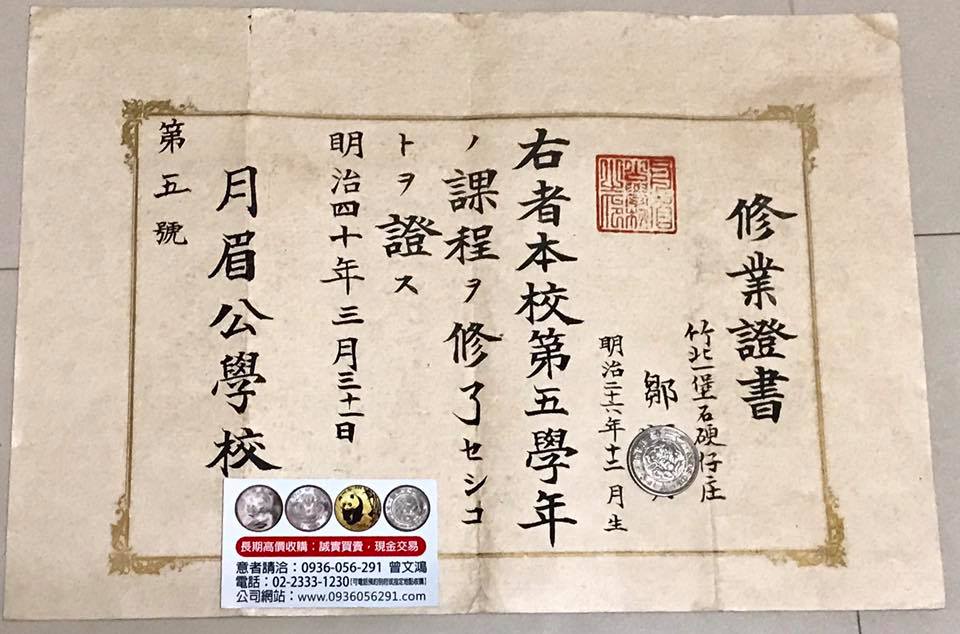 修業證書
竹北一堡石硬仔庄
鄒
明治二十六年十二月生
右者本校第五學年
ノ課程ヲ修了セシコ
トヲ證ス
明治四十年三月三十一日
月眉公學校
第五號
長期高價收購：誠實買賣，現金交易
意者請洽：0936-056-291 曾文鴻
電話：02-2333-1230【可電話預約到府或指定地點收購】
公司網站：www.0936056291.com